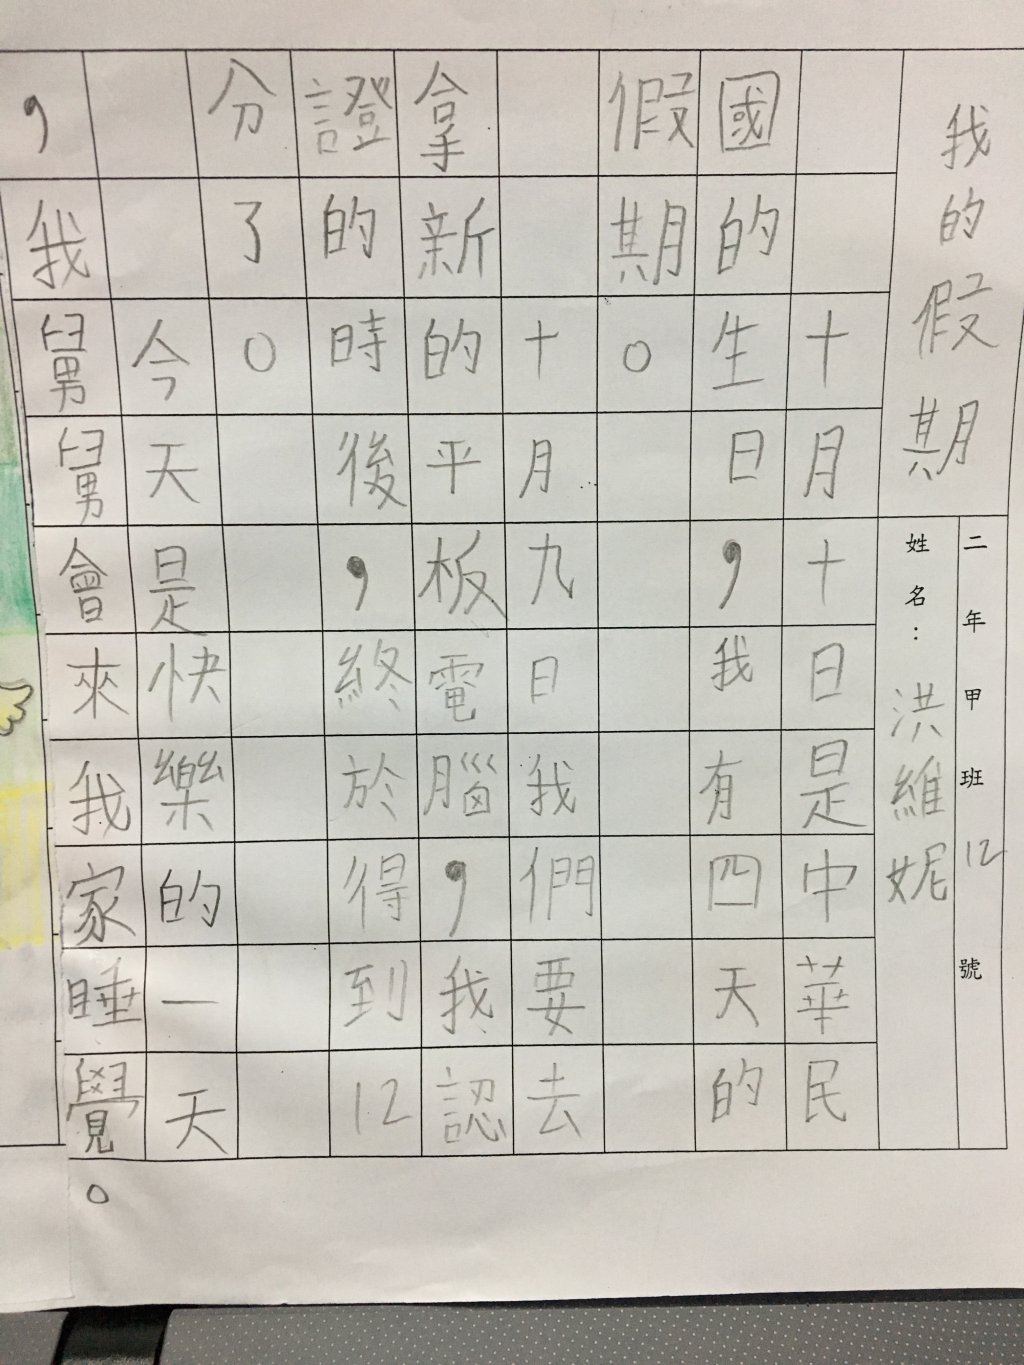 我的假期
二年甲班12號
姓名:洪維妮
十月十日是中華民
國的生日,我有四天的
假期。
十月九日我們要去
拿新的平板電腦,我認
證的時後,終於得到12
分了。
今天是快樂的一天
,我舅舅會來我家睡覺。